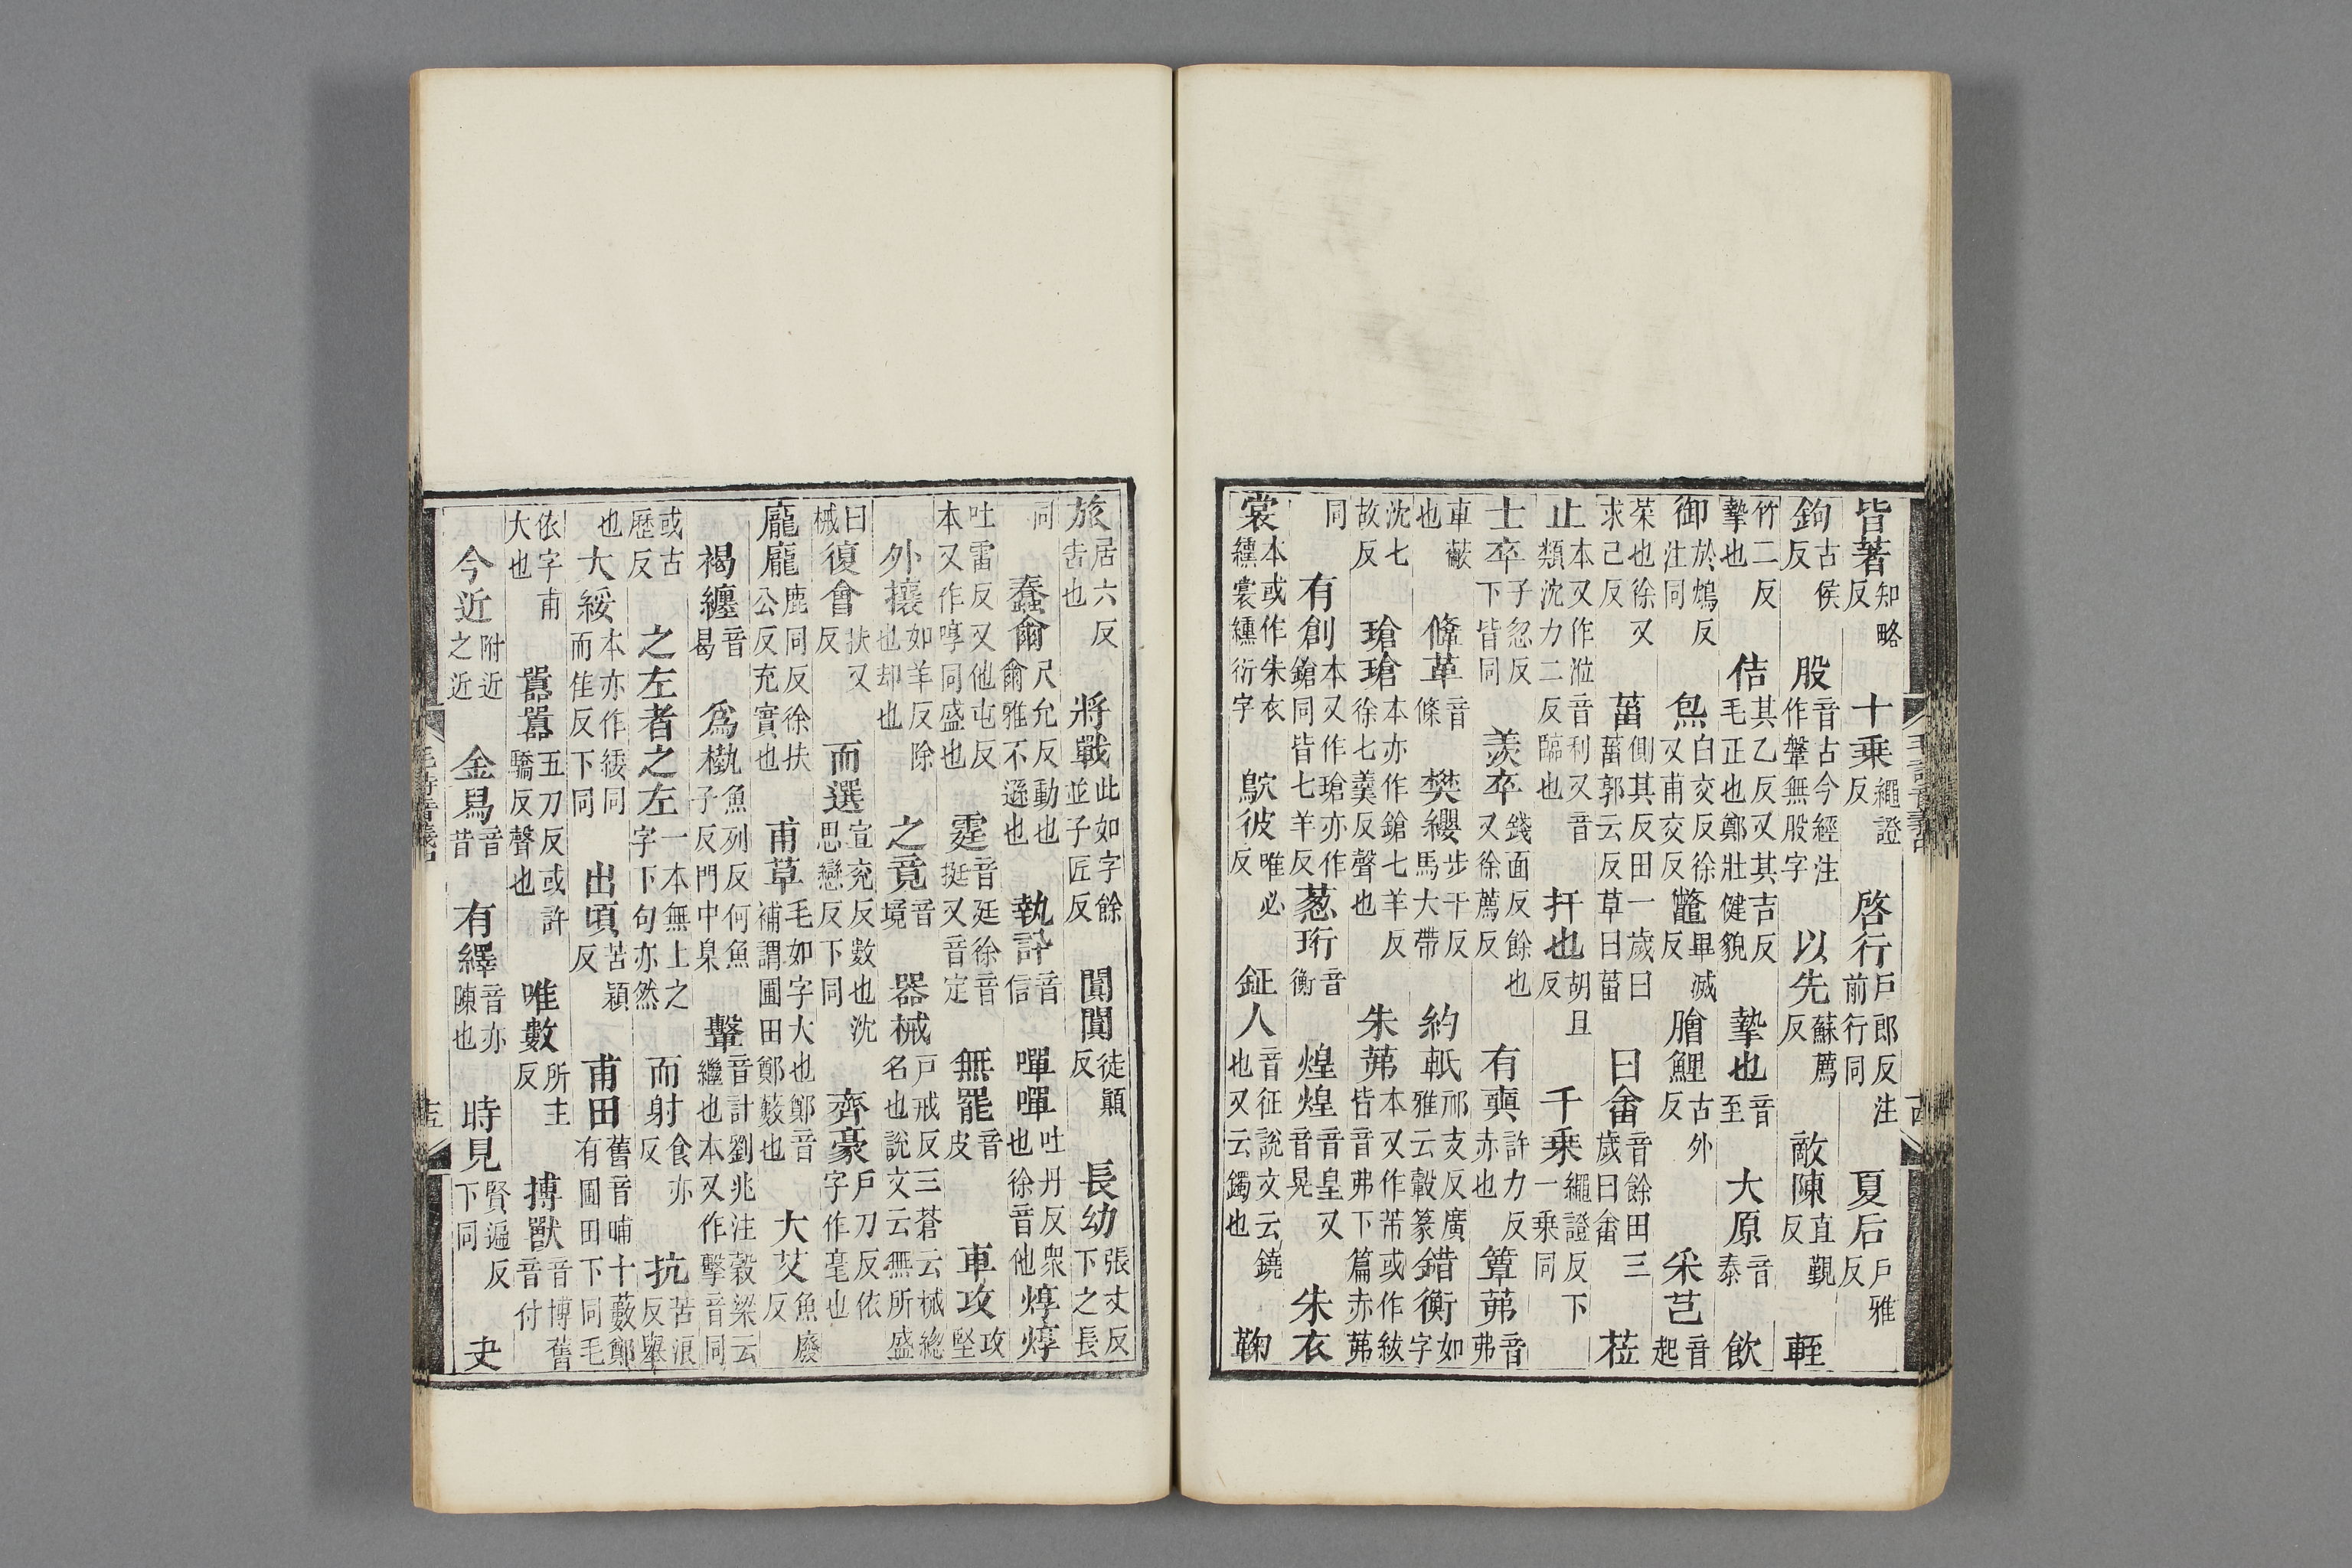 皆著知略反十乘繩證反啓行戶郎反注前行同夏后戶雅反
鉤古侯反股音古今經注作鞶無股字以先蘇薦反敵陳直覲反輊
竹二反摯也佶其乙反又其吉反毛正也鄭壯健貌摯也音至大原音泰飲
御於鴆反注同炰白交反徐又甫交反鼈畢滅反膾鯉古外反采芑音起
菜也徐又求己反菑側其反田一歲曰菑郭云反草曰菑曰畬音餘田三歲曰畬莅
止本又作涖音利又音類沈力二反臨也扞也胡旦反千乘繩證反下一乘同
士卒子忽反下皆同羨卒錢面反餘也又徐薦反有奭許力反赤也簟茀音弗
車蔽也鞗革音條樊纓步干反馬大帶約軝祁支反廣雅云轂篆錯衡如字
沈七故反瑲瑲本亦作鎗七羊反徐七羹反聲也朱茀本又作芾或作紱皆音弗下篇赤茀
同有創本又作瑲亦作鎗同皆七羊反蔥珩音衡煌煌音皇又音晃朱衣
裳本或作朱衣纁裳纁衍字鴥彼唯必反鉦人音征說文云鐃也又云鐲也鞠
毛詩音義中
古
旅居六反告也將戰此如字餘並子匠反闐闐徒顛反長幼張丈反下之長
同蠢爾尺允反動也爾雅不遜也執訊音信嘽嘽吐丹反眾也徐音他焞焞
吐雷反又他屯反本又作啍同盛也霆音廷徐音挺又音定無罷音皮車攻攻堅
外攘如羊反除也却也之竟音境器械戶戒反三蒼云械總名也說文云無所盛
曰械復會扶又反而選宣兖反數也沈思戀反下同齊豪戶刀反依字作毫也
龐龐鹿同反徐扶公反充實也甫草毛如字大也鄭音補謂圃田鄭藪也大艾魚廢反
褐纏音曷爲槷魚列反何魚子反門中臬轚音計劉兆注穀梁云繼也本又作擊音同
或古歷反之左者之左一本無上之字下句亦然而射食亦反抗苦浪反舉
也大綏本亦作緌同而佳反下同出頃苦穎反甫田舊音晡十藪鄭有圃田下同毛
依字甫大也嚻嚻五刀反或許驕反聲也唯數所主反搏獸音博舊音付
今近附近之近金舄音昔有繹音亦陳也時見賢遍反下同史
五